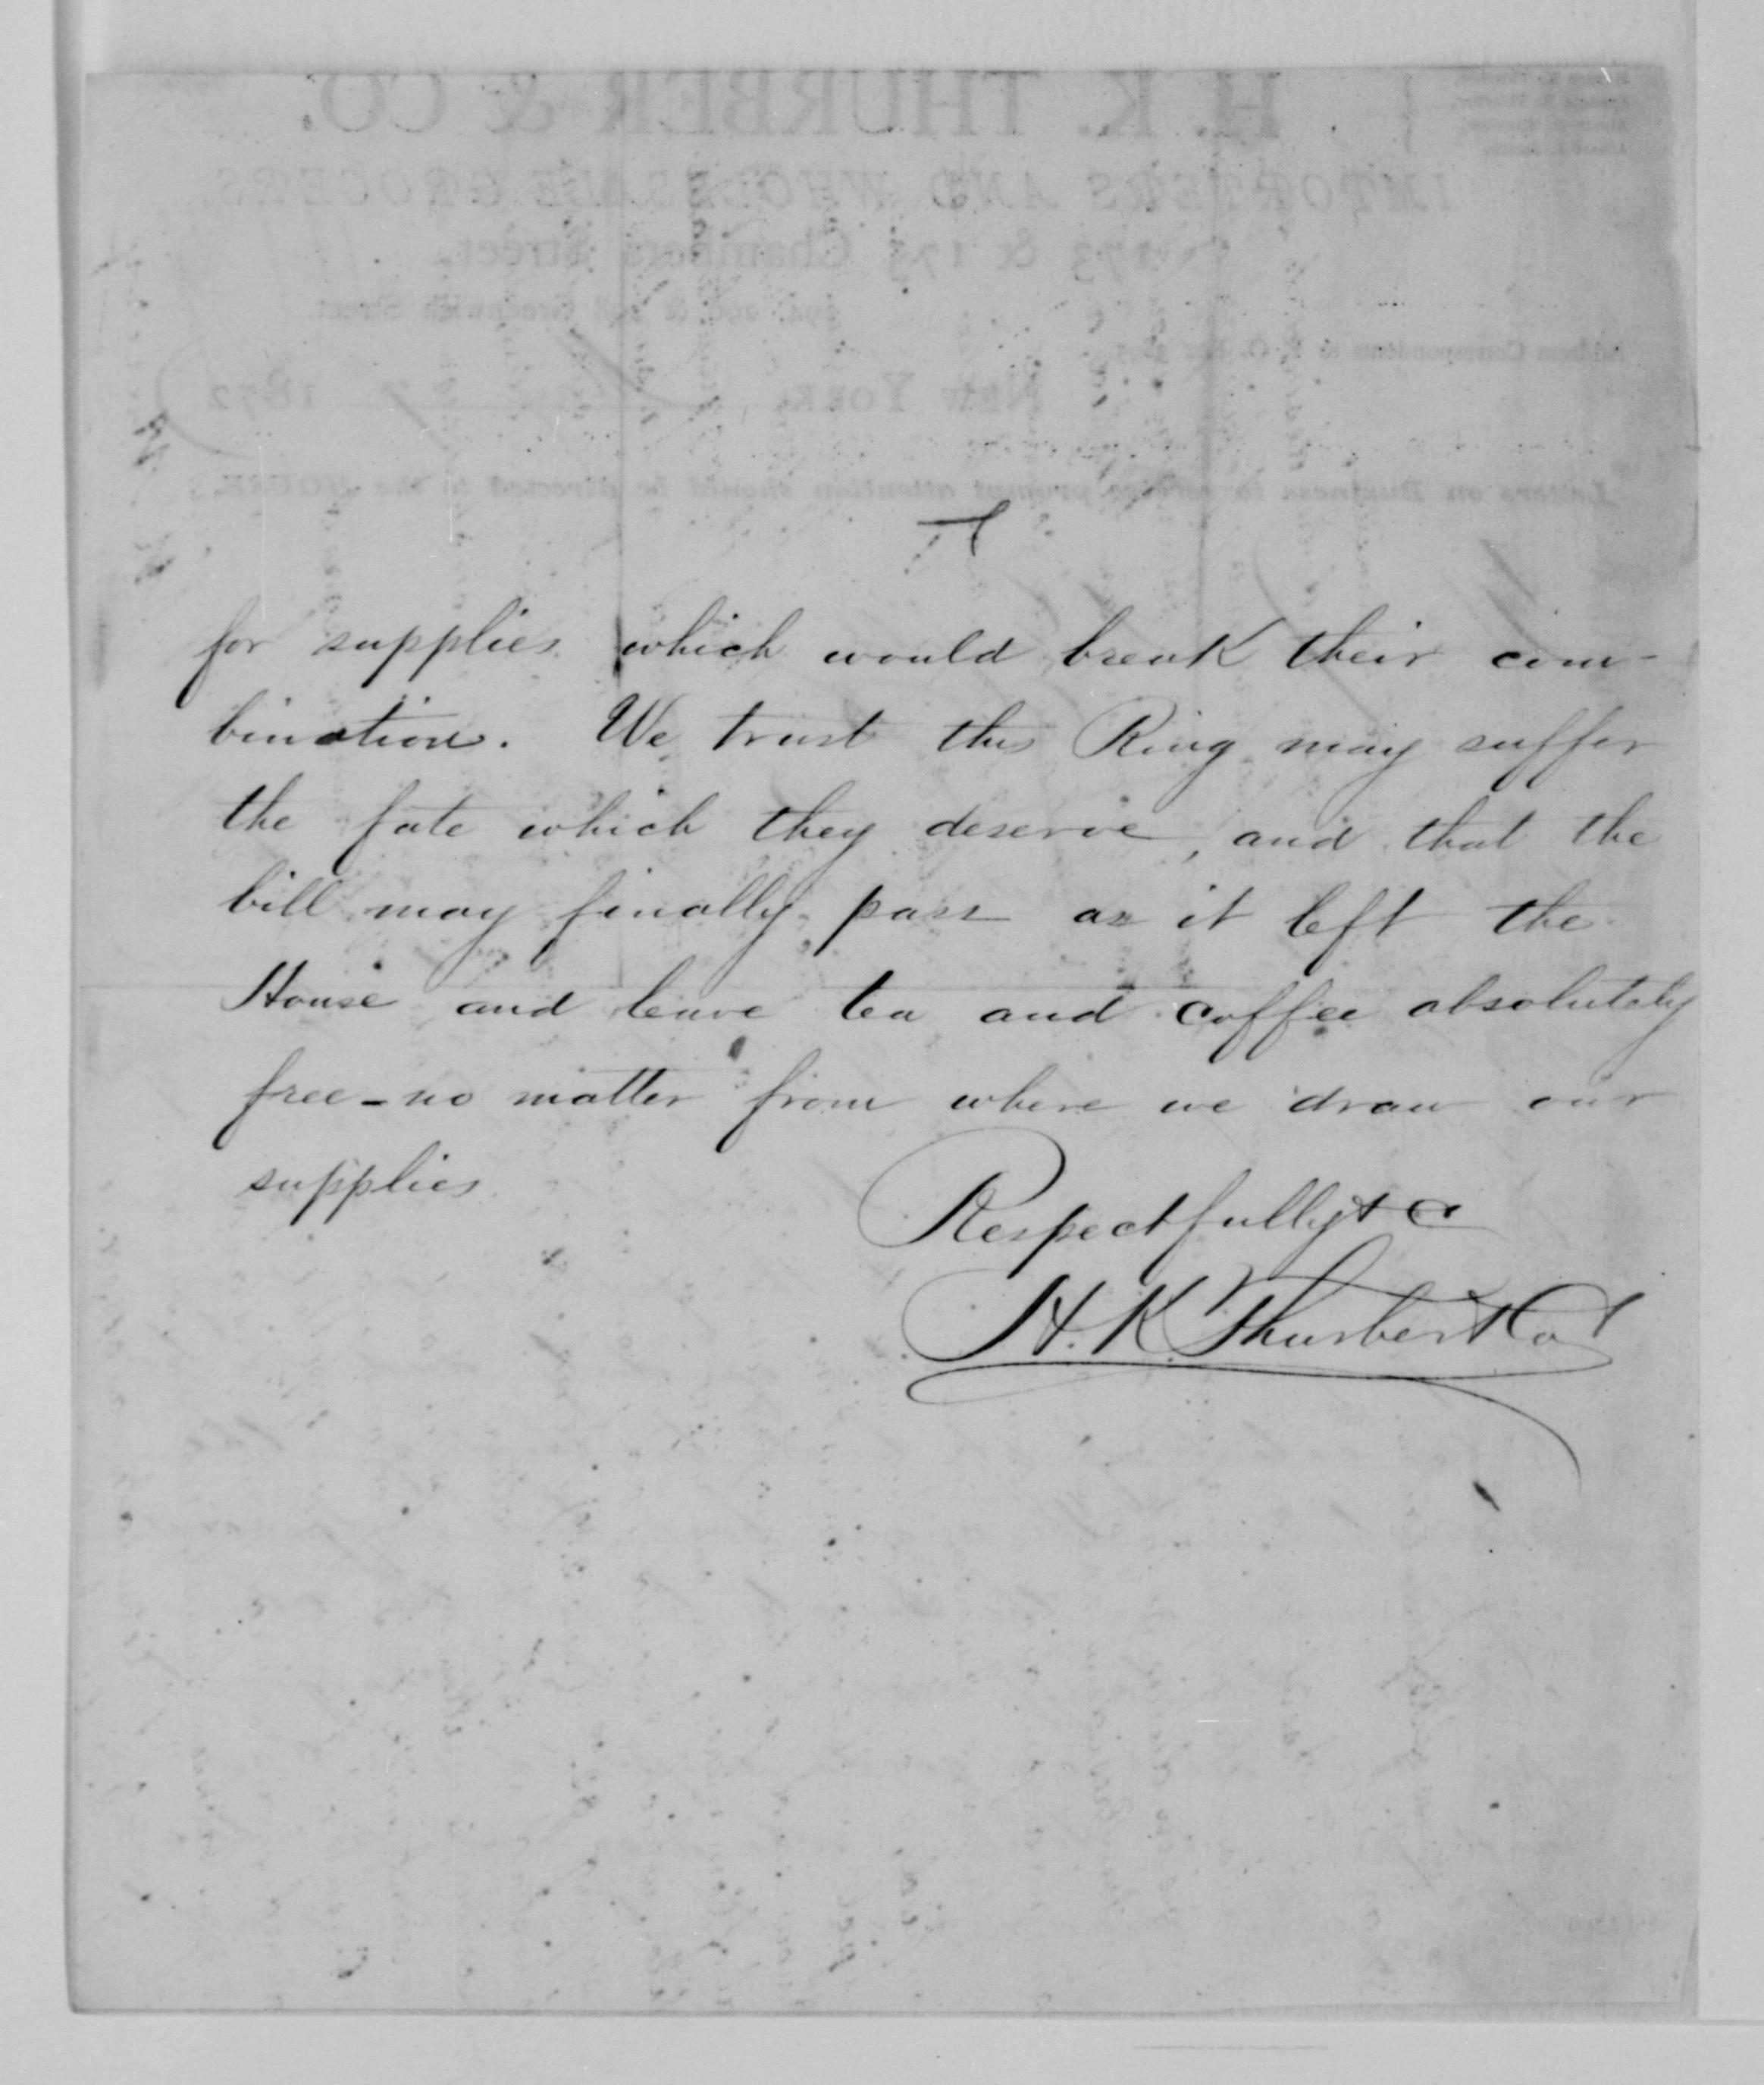 H. K. THURBER & CO.
IMPORTERS AND WHOLESALE GROCERS,
173 & 175 Chambers Street,
294, 296 & 298 Greenwich Street
Address Correspondence to P. O. Box
NEW YORK, 1872
Letters on Business to receive prompt attention should be directed to the HOUSE.
for supplies which would break their com-
bination. We trust this Ring may suffer
the fate which they deserve, and that the
bill may finally pass as it left the
House and leave tea and coffee absolutely
free - no matter from where we draw our
supplies
Respectfully &c
H. K. Thurber & Co